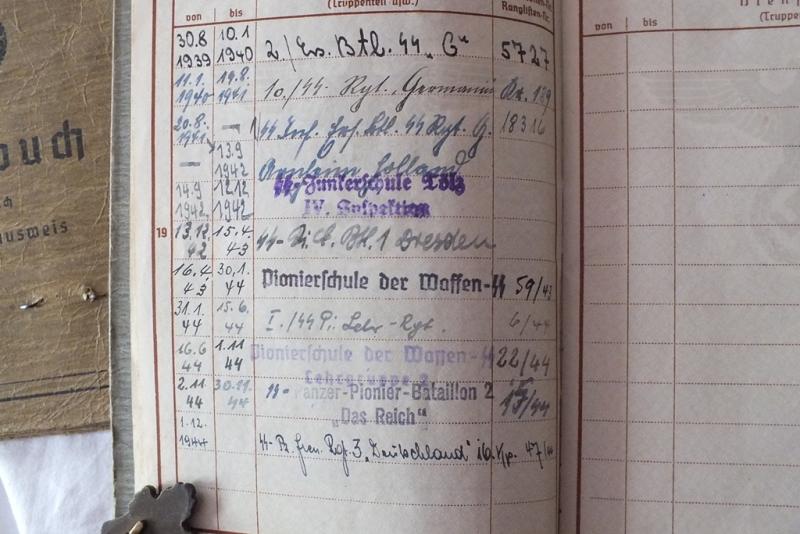 buch
ch
ausweis
von bis (Truppenteil usw.) Ranglisten-Nr.
30.8 1939 10.1 1940 2./Ers. Btl. SS „G“ 5727
11.1. 1940 19.8. 1941 10./SS- Rgt. Germania Nr. 129
20.8. 1941 — SS Inf. Ers. Btl. SS Rgt. G. 18316
— 13.9 1942 Arnheim, Holland
14.9 1942 12.12 1942 SS-Junkerschule Tölz
IV. Inspektion
19 13.12. 42 15.4. 43 SS- Btl. 1 Dresden
16.4. 43 30.1. 44 Pionierschule der Waffen-SS 59/43
31.1. 44 15.6. 44 I./SS Pi. Lehr-Rgt. 6/44
16.6 44 1.11 44 Pionierschule der Waffen-SS 22/44
Lehrgruppe
2.11. 44 30.11. 44 SS-Panzer-Pionier-Bataillon 2
„Das Reich“
1.12. 1944 SS-Pz. Gren. Rgt. 3 „Deutschland“ 16. Kp. 47/44
von bis
(Truppe